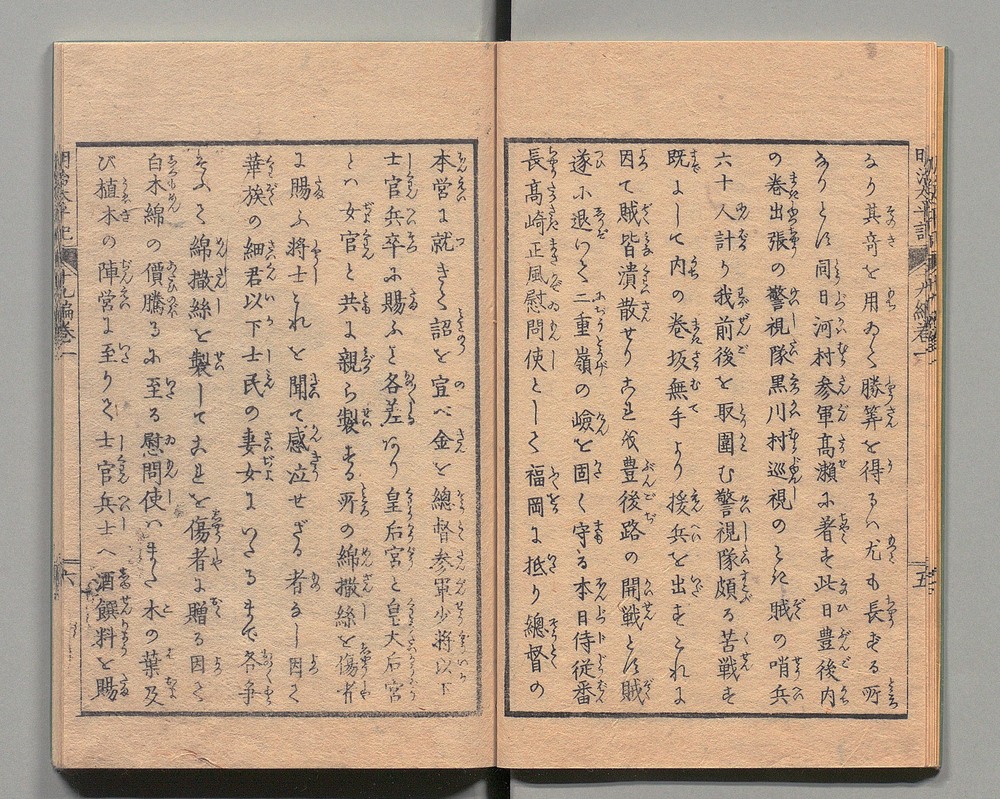 なり其奇を用ゐて勝筭を得るハ尤も長ずる所
ありとぞ同日河村参軍高瀬に著す此日豊後内
の巻出張の警視隊黒川村巡視のとき賊の哨兵
六十人計り我前後を取圍む警視隊頗る苦戦す
既にして内の巻坂無手より援兵を出すこれに
因て賊皆潰散せりこれを豊後路の開戦とす賊
遂に退いて二重嶺の嶮を固く守る本日侍従番
長高崎正風慰問使として福岡に抵り總督の
本営に就きて詔を宣べ金を總督参軍少将以下
士官兵卒に賜ふと各差あり皇后宮と皇大后宮
とハ女官と共に親ら製する所の綿撒絲を傷者
に賜ふ将士これを聞て感泣せざる者なし因て
華族の細君以下士民の妻女にいたるまで各争
そふて綿撒絲を製してこれを傷者に贈る因て
白木綿の價騰るに至る慰問使ハまた木の葉及
び植木の陣営に至りて士官兵士へ酒饌料を賜
明治太平記
十九編巻一
五
六